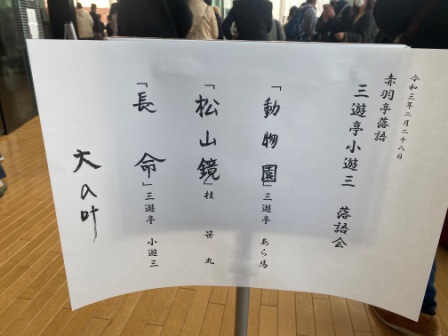 令和三年二月二十八日
赤羽亭落語
三遊亭小遊三 落語会
「動物園」三遊亭 あら馬
「松山鏡」桂 笹丸
「長命」三遊亭 小遊三
大の叶